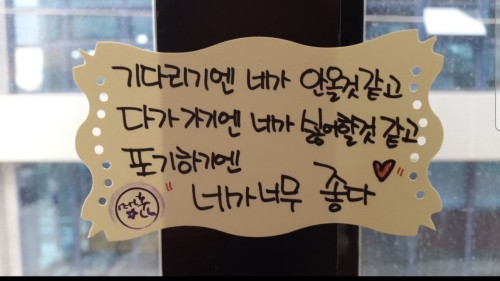 기다리기엔 네가 안올것같고
다가가기엔 네가 싫어할것 같고
포기하기엔
"네가너무 좋다"